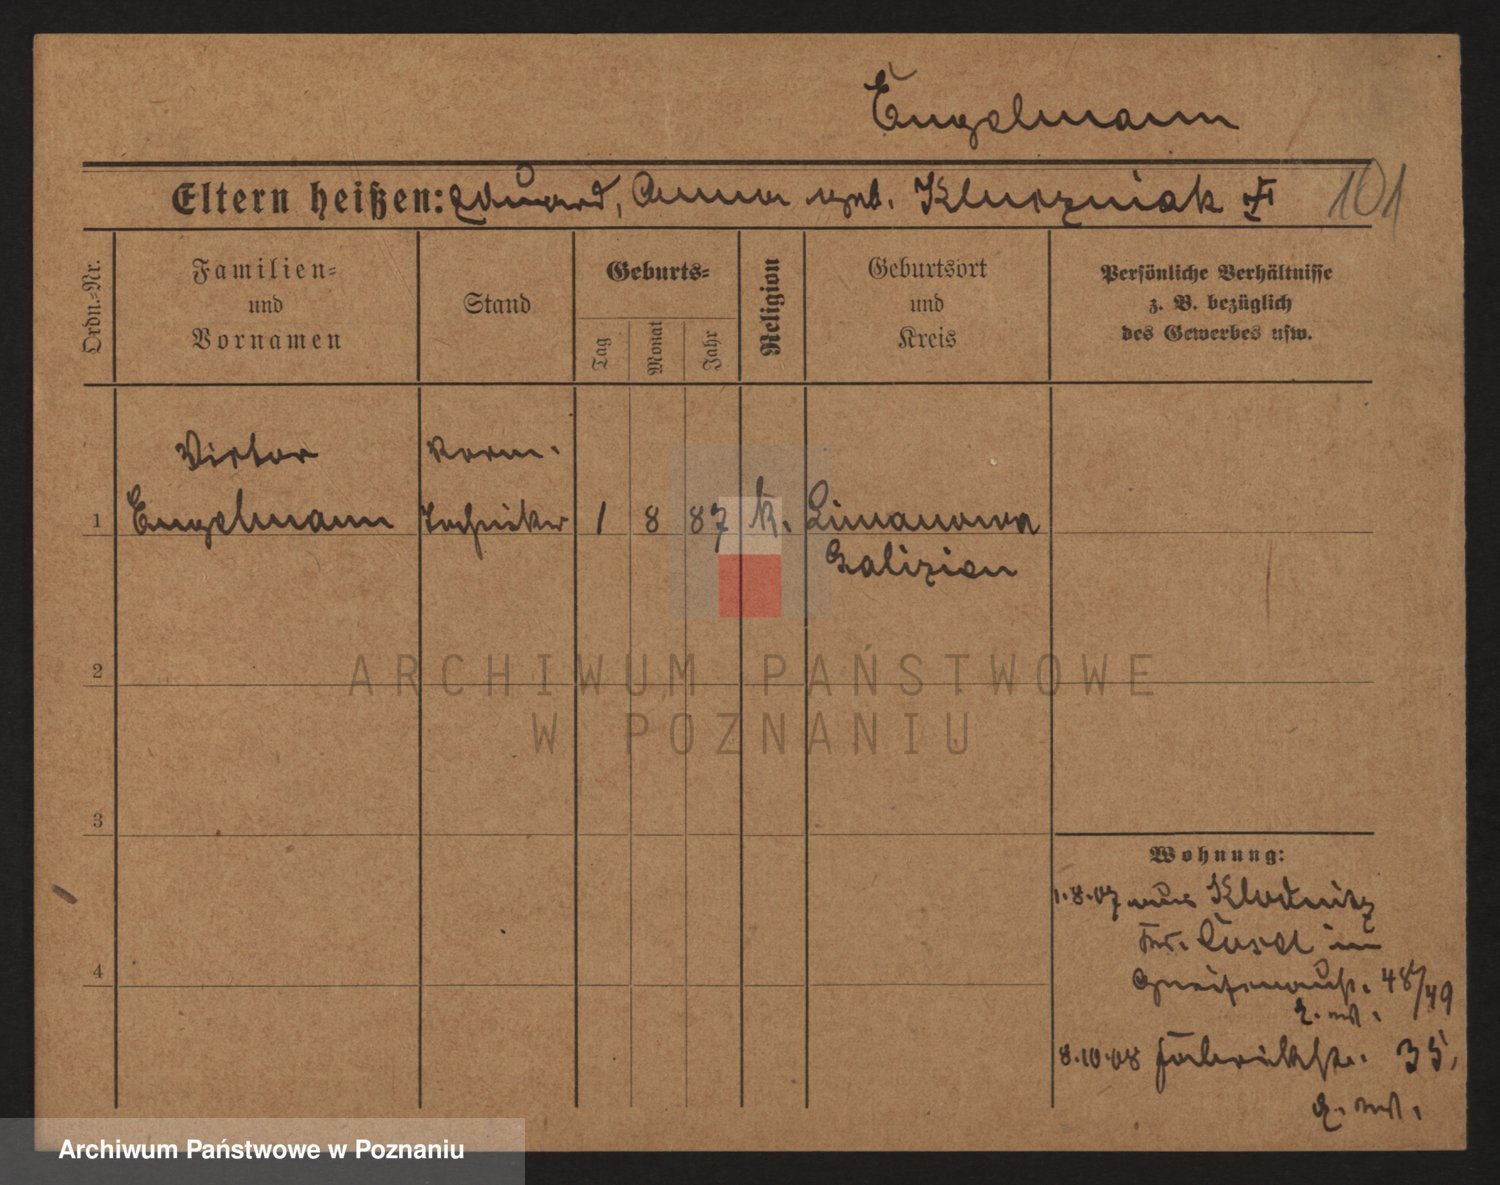 Engelmann
Eltern heißen: Eduard, Anna geb. Kluczniak
101
Ordn.=Nr.
Familien=
und
Vornamen
Stand
Geburts=
Tag
Monat
Jahr
Religion
Geburtsort
und
Kreis
Persönliche Verhältnisse
z. B. bezüglich
des Gewerbes usw.
Victor
Engelmann
Techniker
1
1 8 87 k. Limanowa
Galizien
2
ARCHIWUM PAŃSTWOWE
W POZNANIU
3
4
Wohnung:
1.8.07 aus Klodnitz
Kr. Cosel in
Gneisenaustr. 48/49
8.10.08 Fabrikstr. 35,
Archiwum Państwowe w Poznaniu